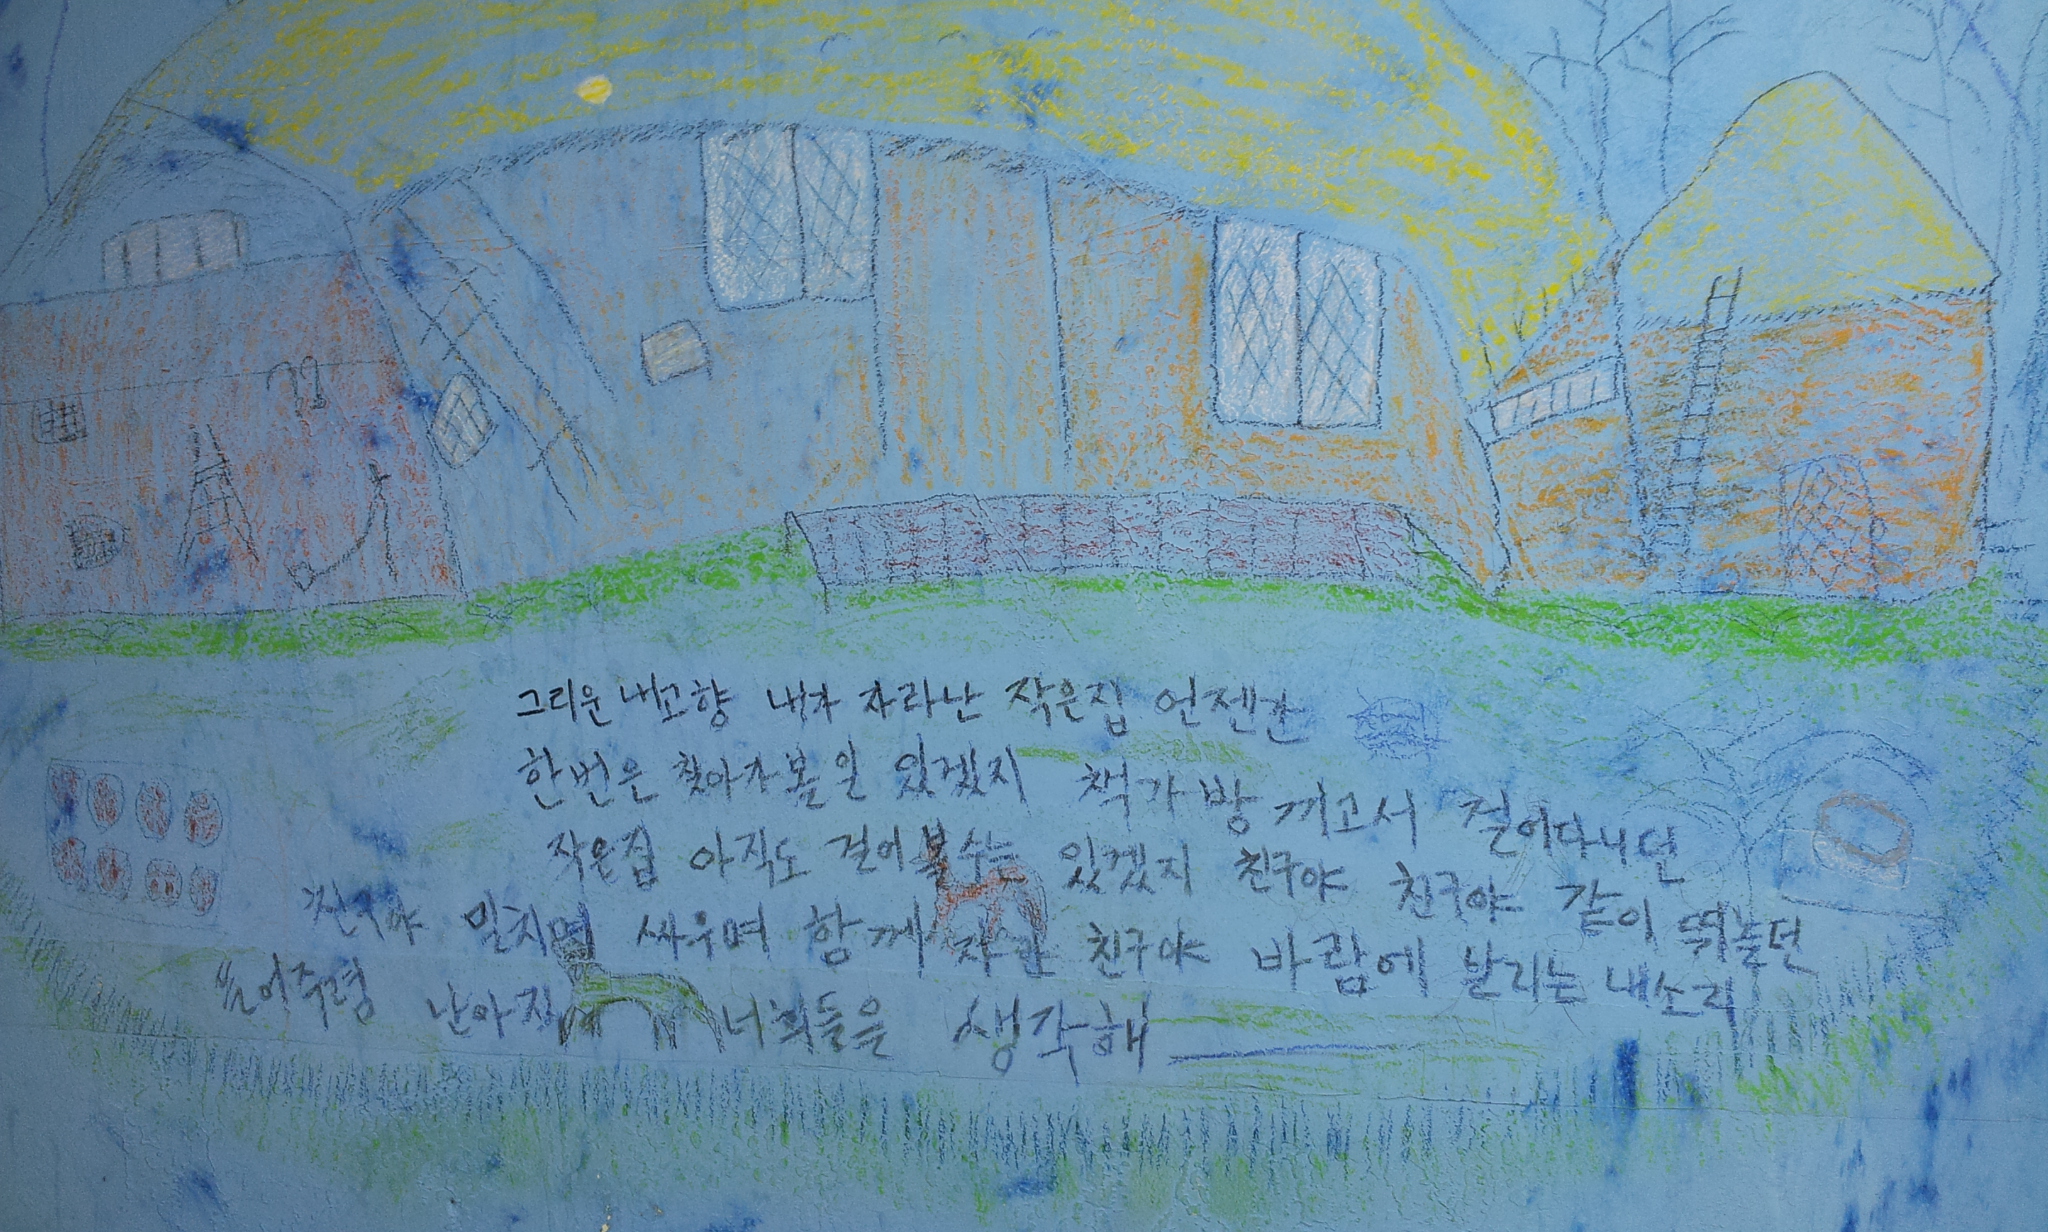 그리운 내고향 내가 자라난 작은집 언젠가
한번은 찾아가 볼 일 있겠지 책가방 끼고서 걸어다니던
작은집 아직도 걸어볼수는 있겠지 친구야 친구야 같이 뛰놀던
친구야 밀치며 싸우며 함께 자란 친구야 바람에 날리는 내소리
들어주렴 난아직 너희들을 생각해